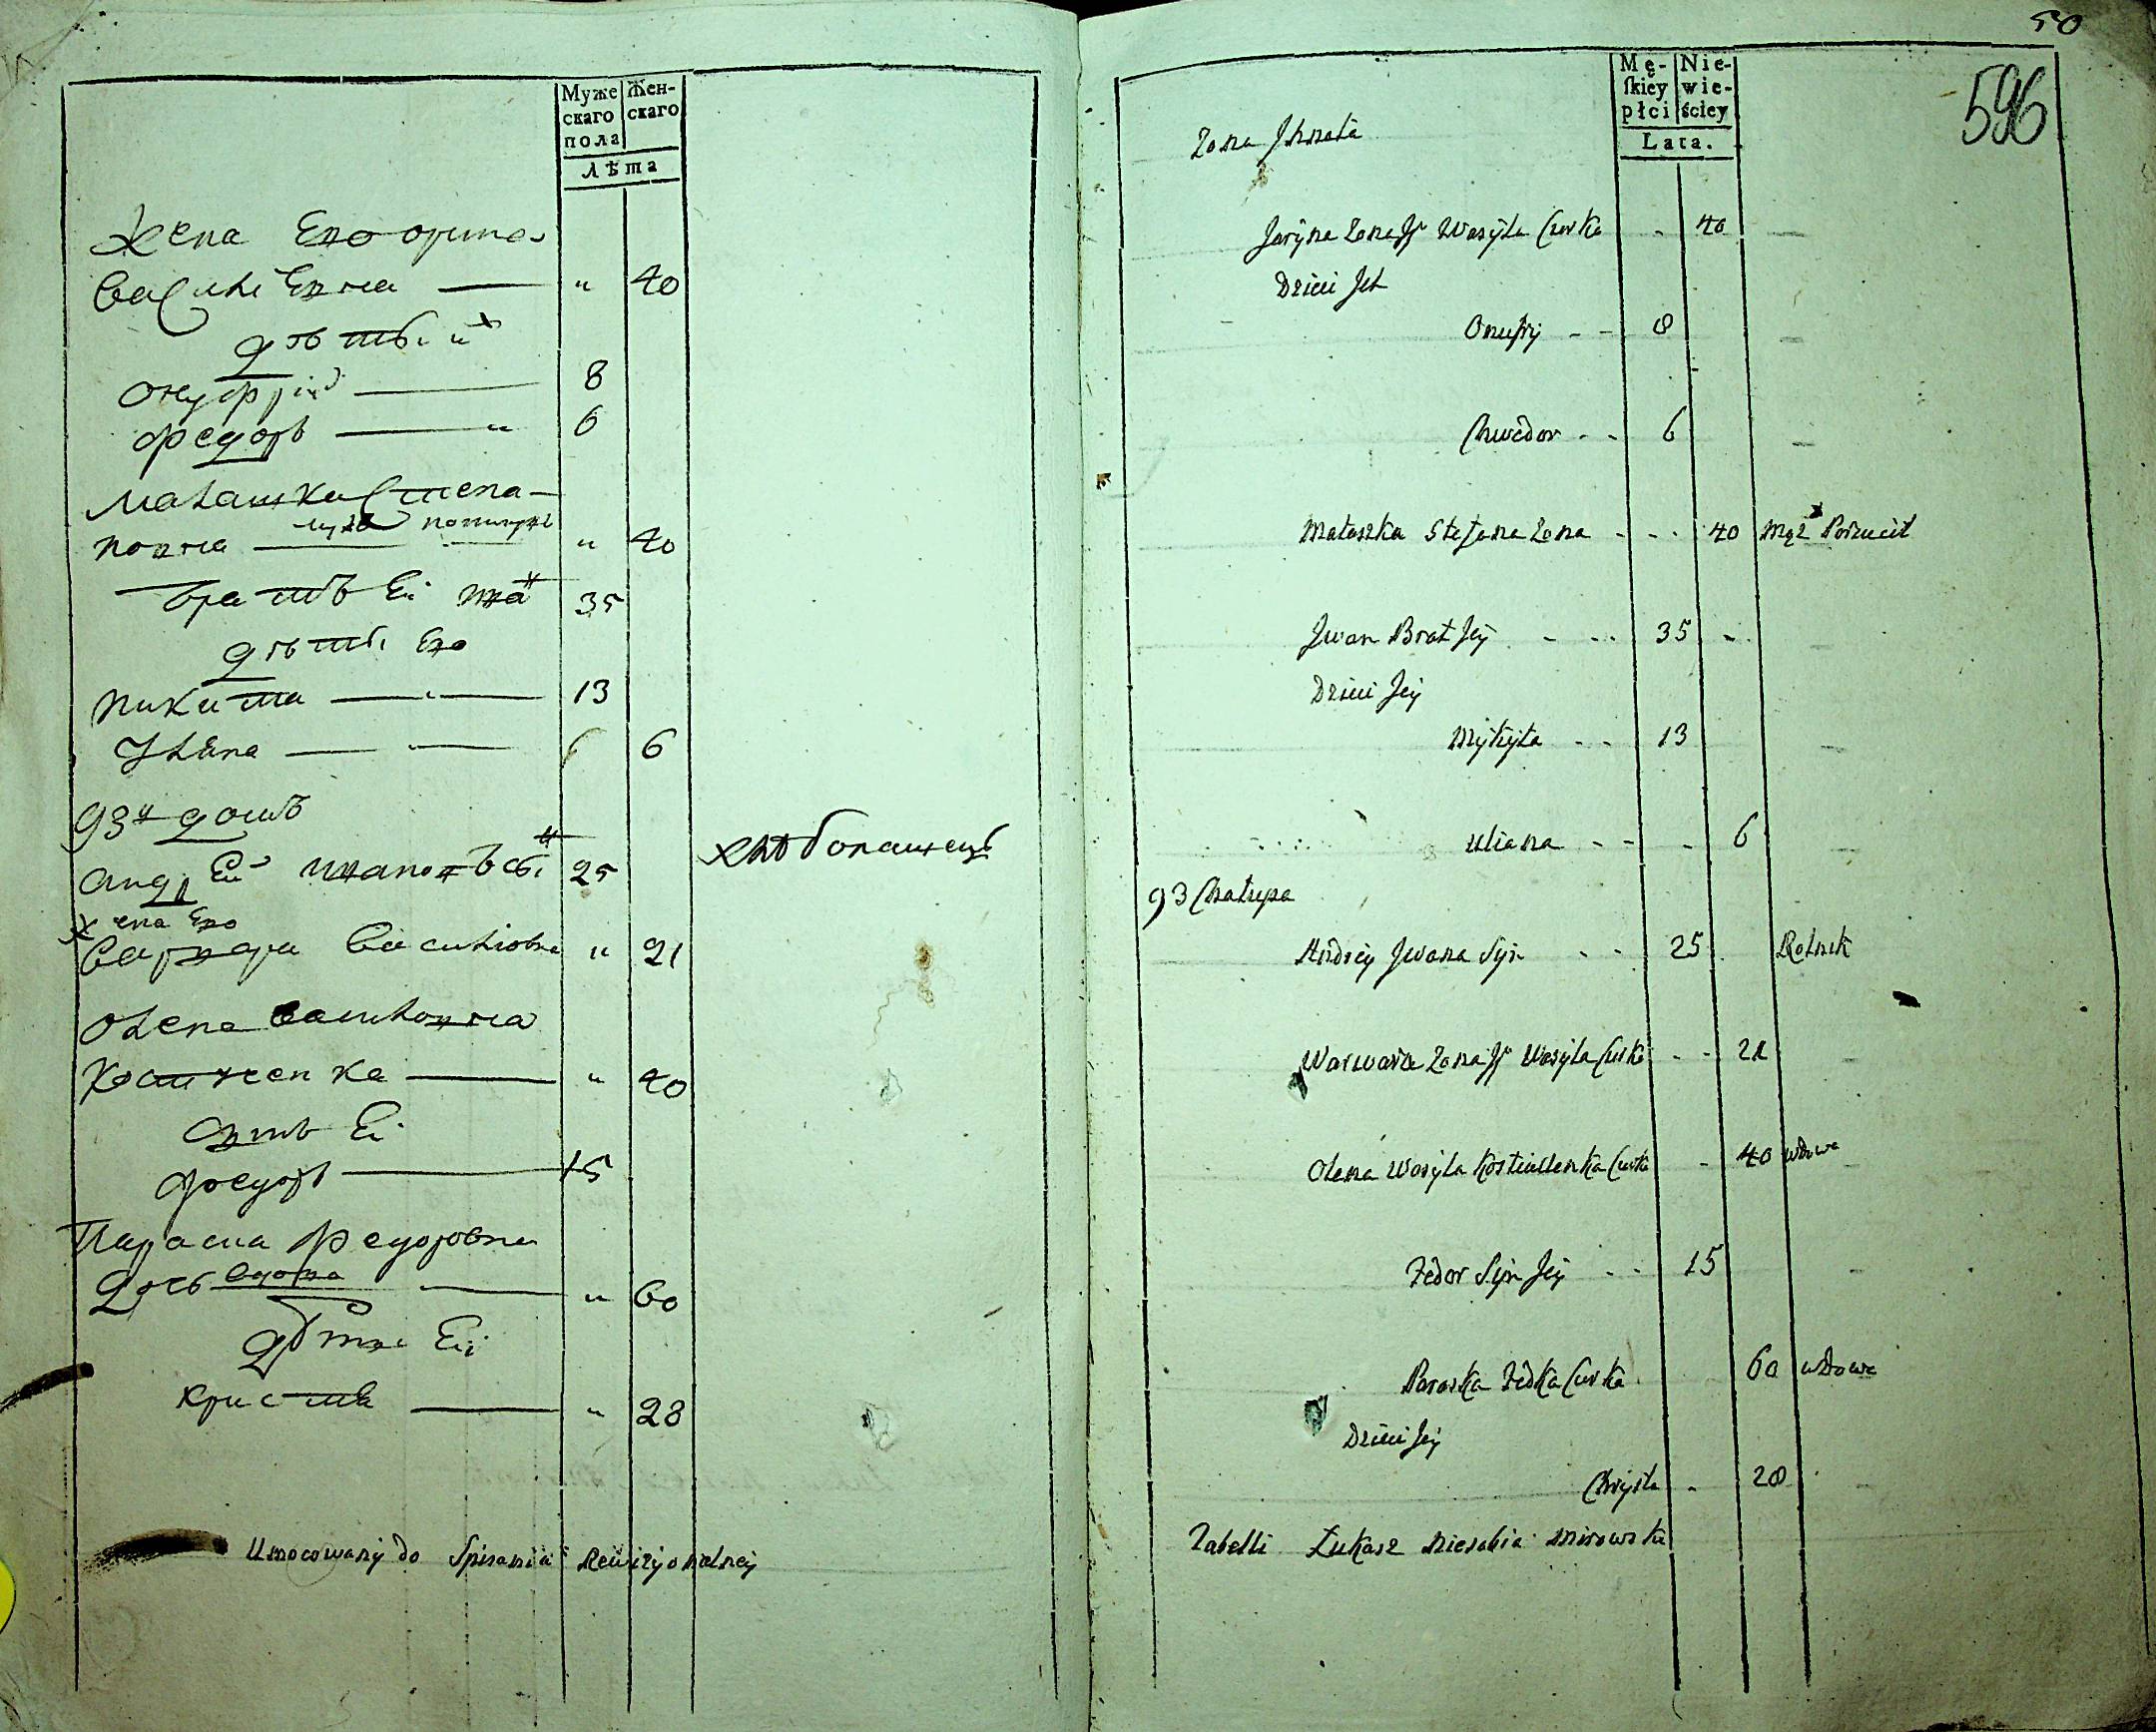 Муже
скаго
пола
Жен-
скаго
Лѣта
Жена Его орина
Василиевна — " 40
дѣти их
Онуфрій — 8
Федоръ — " 6
Малашка Степа-
новна — мужъ " 40
братъ Ей Иванъ 35
дѣти Его
Никита — 13
Уляна — 6
93й домъ
Андрей Ивановъ Сынъ 25 хлѣбопашецъ
жена Его
Варвара Василіовна " 21
Олена Василовна
Костюченка — " 40
Сынъ Ей
Федоръ — 15
Параска Федоровна
Дочь вдова — " 60
дѣти Ей
Христя — " 28
Umocowany do Spisania Rewizyonalney
50
596
Mę-
ſkiey
płci
Nie-
wie-
ściey
Lata.
Zona Jhnata
Jaryna Zona Jº Wasyla Curka - 40
Dzieci Jch
Onufry - - 8
Chwedor - - 6
Małaszka Stefana Zona - - - 40 Mąż Porzucił
Jwan Brat Jey - - - 35 -
Dzieci Jey
Mykyta - - 13
Uliana - - - 6
93 Chałupa
Andrey Jwana Syn - - 25 Rolnik
Warwara Zona Jº Wasyla Curka - - 21
Olena Wasyla Kostiuczenka Curka - 40 wdowa
Fedor Syn Jey - - 15
Paraska Fedka Curka 60 wdowa
Dzieci Jey
Chrysta - 28
Tabelli Łukasz